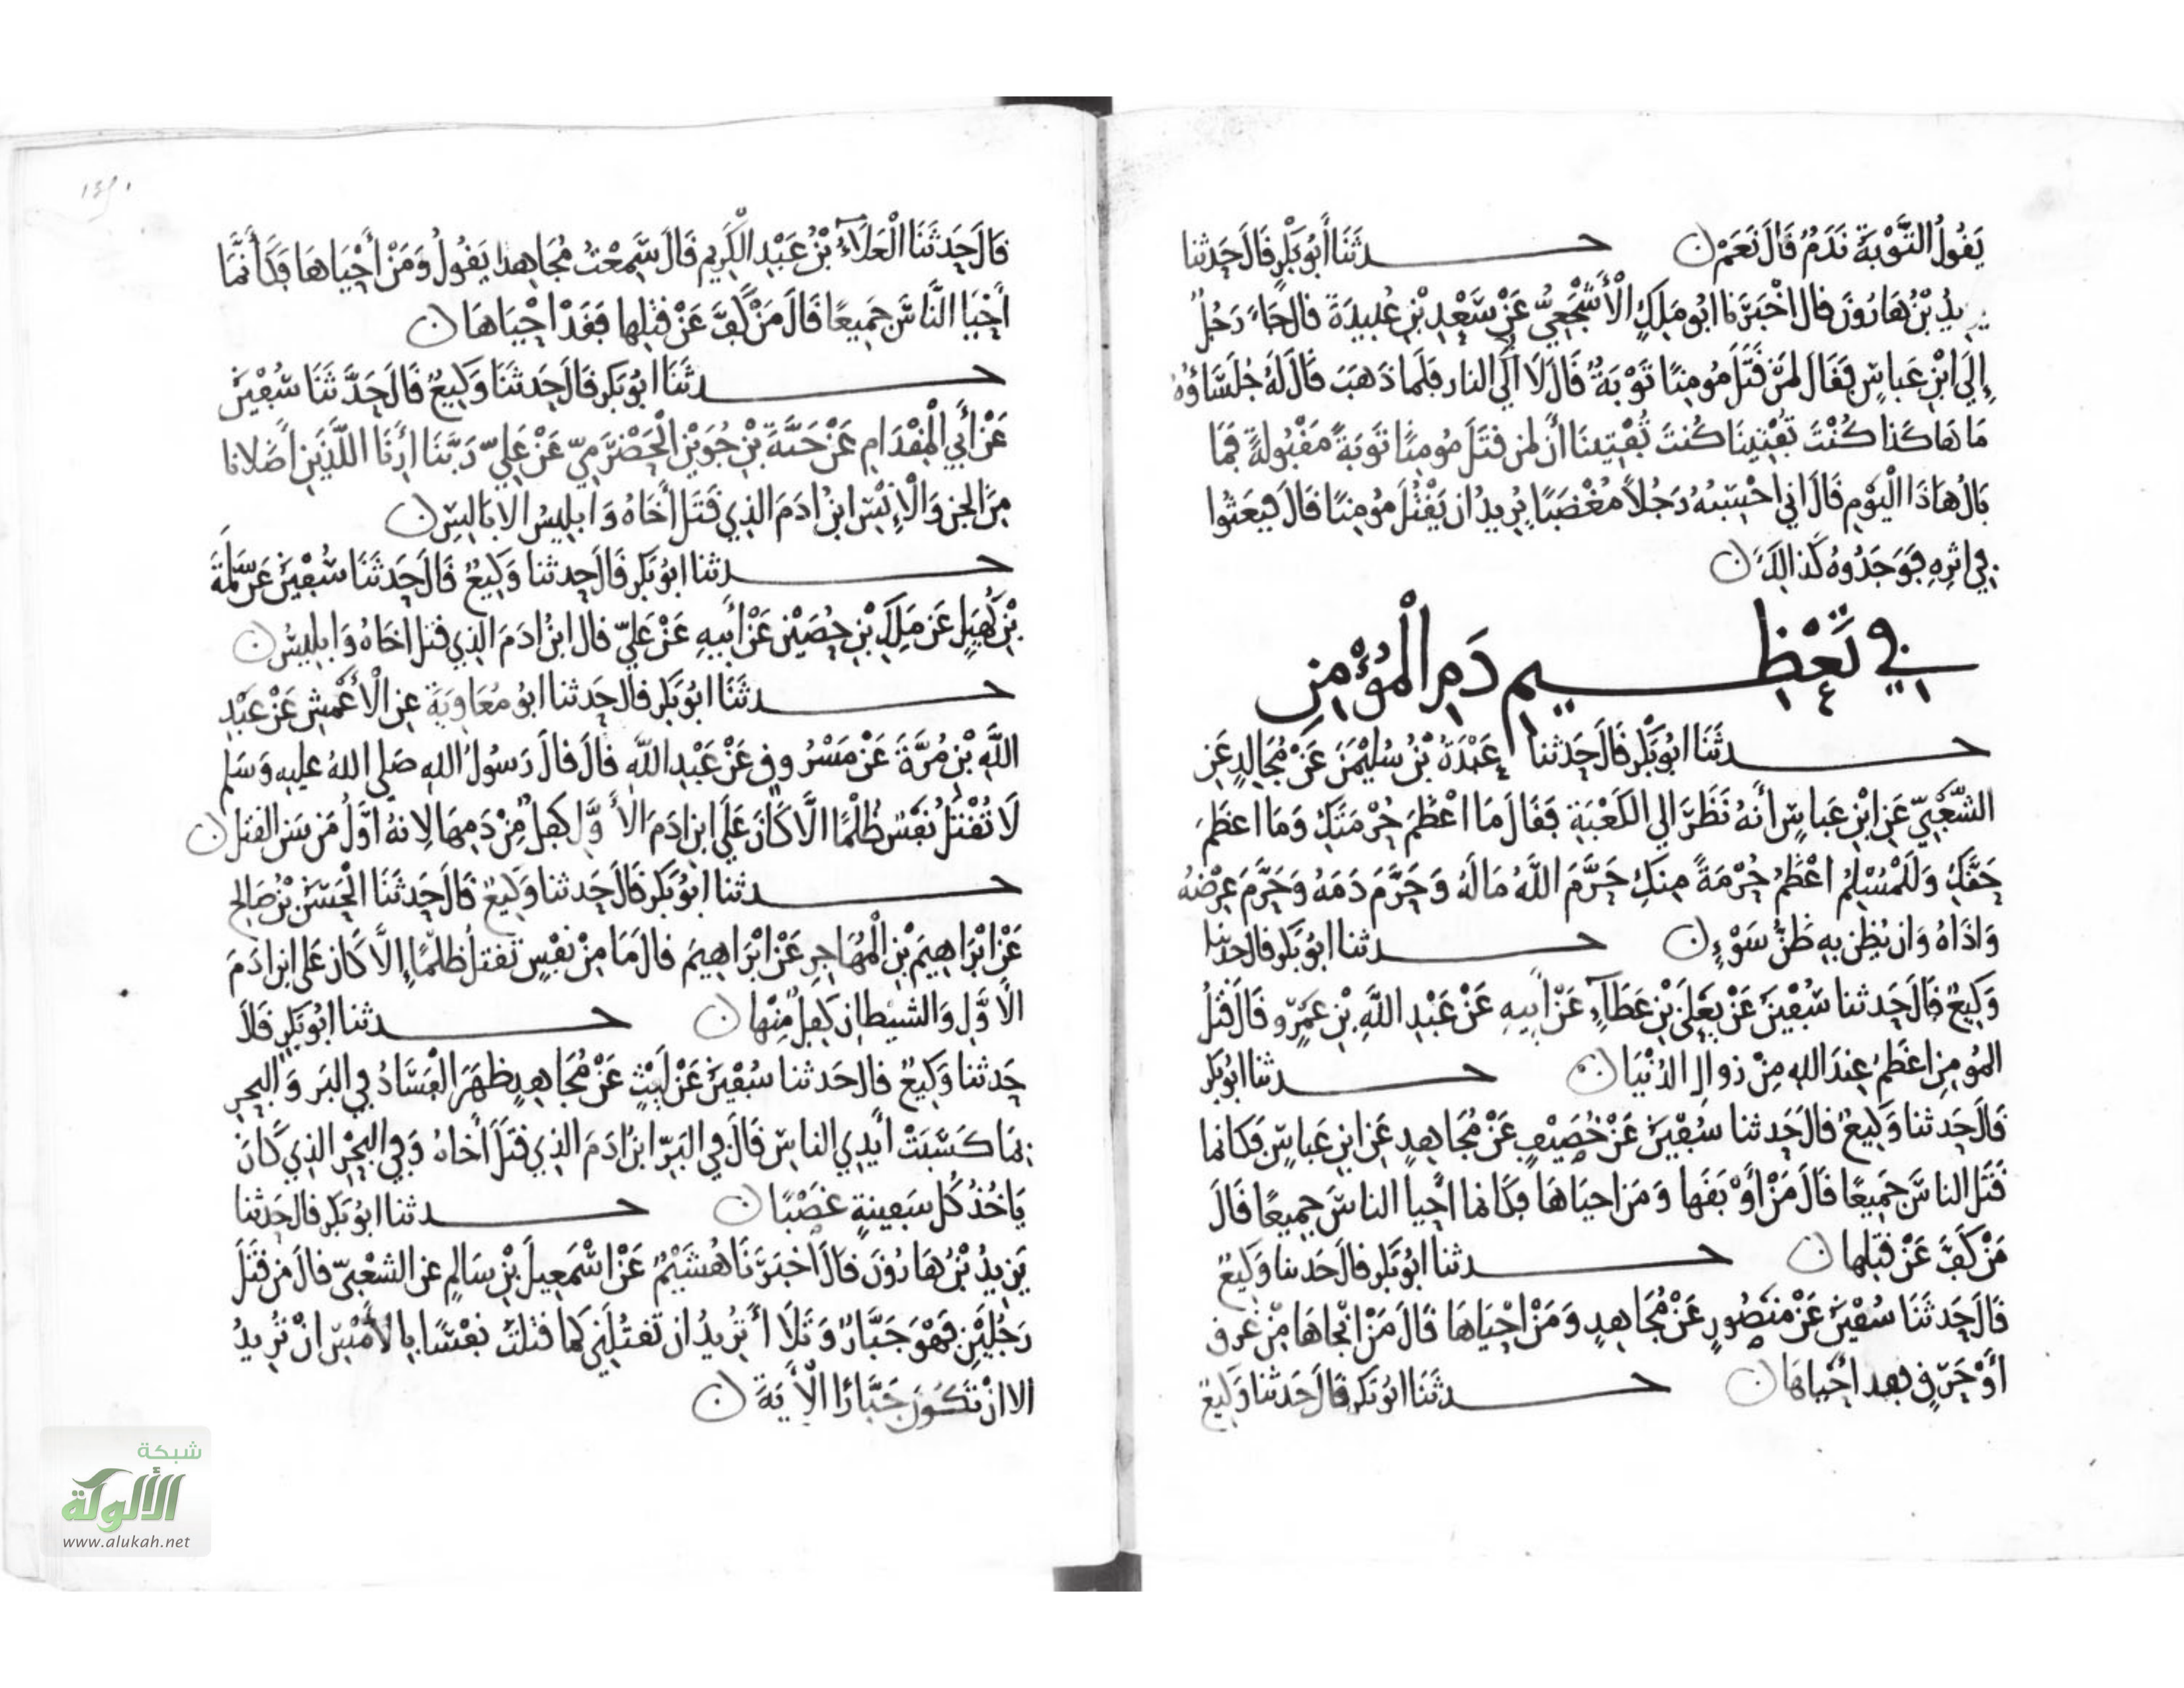 يَقُولُ التَّوْبَةُ نَدَمٌ قَالَ نَعَمْ ن حدثَنَا أَبُو بَكْرٍ قَالَ حَدثنا
يزيدُ بْنُ هَارُونَ قال اخْبَرَنا ابُو مَلِكٍ الْأَشْجَعِيُّ عَنْ سَعْدِ بْنِ عُبيدَةَ قال جَاءَ رَجُلٌ
إِلَى ابْنِ عَباسٍ فَقَال لمَنْ قَتَلَ مُومِنًا تَوْبَةٌ قَالَ لَا الَّا النار فلَما ذَهَبَ قَالَ لَهُ جُلَسَاؤُهُ
مَا هَا كَذا كُنْتَ تُفْتِينَا كُنتَ تُفْتِينا أَن لمن قتَلَ مُومِنًا تَوبَةً مَقْبُولةً فمَا
بَالُ هَاذَا الْيَوْمِ قَالَ اني احْسِبُهُ رَجُلًا مُغْضَبًا يُرِيدُ ان يَقْتُلَ مُومِنًا قَالَ فبعَثُوا
في اثرِهِ فَوَجَدُوهُ كَذالِكَ ن
في تَعْظِيمِ دَمِ الْمُؤْمِنِ
حدثَنَا ابُو بَكْرٍ قَالَ حَدثنا عَبْدَةُ بْنُ سُلَيْمَنَ عَنْ مُجَالِدٍ عَنِ
الشَّعْبِيِّ عَنِ ابْنِ عَباسٍ أَنَّهُ نَظَرَ الي الكَعْبَةِ فَقَالَ مَا اعْظَمَ حُرْمَتَكِ وَمَا اعظَمَ
حَقَّكِ وَلَلْمُسْلِمُ اعْظَمُ حُرْمَةً مِنكِ حَرَّمَ اللَّهُ مَالَهُ وَحَرَّمَ دَمَهُ وَحَرَّمَ عِرْضَهُ
وَاذَاهُ وَان يُظن بِهِ ظَنَّ سَوْءٍ ن حدثنا ابُو بَكْرٍ قال حدثنا
وَكِيعٌ قالَ حَدثنا سُفْيَنُ عَنْ يَعْلَى بْنِ عَطَآءٍ عَنْ أَبِيهِ عَنْ عَبْدِ اللَّهِ بْنِ عَمْرٍو قَالَ قَتْلُ
المُومِنِ اعْظَمُ عِندَ اللهِ مِنْ زوالِ الدُّنْيَا ن حدثنا ابُو بَكْرٍ
قَالَ حَدثنا وَكِيعٌ قالَ حَدثنا سُفْيَنُ عَنْ خُصَيْفٍ عَنْ مُجَاهِدٍ عَنِ ابنِ عَباسٍ فَكَانما
قَتَلَ الناسَ جَمِيعًا قَالَ مَنْ أَوْبَقَهَا وَمَن احيَاهَا فكَانما احْيا الناسَ جمِيعًا قَالَ
مَنْ كَفَّ عَنْ قتلِها ن حدثنا ابُو بَكْرٍ قال حَدثنا وَكِيعٌ
قَالَ حَدثَنَا سُفْيَنُ عَنْ مَنصُورٍ عَنْ مُجَاهِدٍ وَمَنْ احْيَاهَا قَالَ مَنْ انْجاهَا مِنْ غَرقٍ
أَوْ حَرَقٍ فقد احْيَاهَا ن حدثَنَا ابُو بَكْرٍ قَالَ حَدثنا وَكِيعٌ
قَالَ حَدثَنَا الْعَلَآءُ بْنُ عَبْدِ الْكَرِيمِ قَالَ سَمِعْتُ مُجَاهِدًا يَقُولُ وَمَنْ أَحْيَاهَا فَكَأَنَّمَا
أَحْيَا النَّاسَ جَمِيعًا قَالَ مَنْ كَفَّ عَنْ قتْلِها فَقَدْ احْيَاهَا ن
حدثَنَا ابُو بَكر قَالَ حَدثَنَا وَكِيعٌ قَالَ حَدَّثَنَا سُفْيَنُ
عَنْ أَبِي الْمِقْدَامِ عَنْ حَبَّةَ بْنِ جُوَيْنٍ الْحَضْرَمِيِّ عَنْ عَلِيٍّ رَبَّنَا أَرِنَا اللَّذَينِ أَضَلَانا
مِنَ الجن وَالْإِنْسِ ابنُ ادَمَ الذِي قَتَلَ أَخَاهُ وَابلِيسُ الابَالِيسِ ن
حدثنا ابُو بَكرٍ قَالَ حدثنا وَكِيعٌ قَالَ حَدَثَنَا سُفْيَنُ عَن سَلَمَةَ
بْنِ كُهَيْلٍ عَن مَلِكِ بْنِ حُصَيْنٍ عَنْ أَبيهِ عَنْ عَلِيٍّ قال ابنُ ادَمَ الذِي قتل اخَاهُ وَابلِيسُ ن
حدثَنَا ابُو بَكْرٍ قالَ حَدثنا ابُو مُعَاوِيَةَ عنِ الْأَعْمَشِ عَنْ عَبْدِ
اللَّهِ بْنِ مُرَّةَ عَنْ مَسْرُوقٍ عَنْ عَبْدِ اللَّهِ قَالَ قالَ رَسُولُ اللهِ صَلى اللهُ عليهِ وَسَلم
لَا تُقْتَلُ نَفْسٌ ظُلْمًا الَّا كَانَ عَلَى ابنِ ادَمَ الأَوَّلِ كِفلٌ مِنْ دَمِهَا لِانهُ اوَّلُ مَن سَن القتل ن
حدثنا ابُو بَكْرٍ قَالَ حَدثنا وَكِيعٌ قَالَ حَدثَنَا الْحَسَنُ بْنُ صَالِحٍ
عَنْ ابْرَاهِيمَ بْنِ الْمُهَاجِرِ عَنْ ابْرَاهِيمَ قالَ مَا مِنْ نفْسٍ تقتلُ ظلْمًا إِلَّا كَانَ عَلَى ابنِ ادَمَ
الاوَّلِ وَالشيْطانِ كِفلٌ مِنْها ن حدثنا ابُو بَكرٍ قَالَ
حَدثنا وَكِيعٌ قالَ حَدثنا سُفْيَنُ عَنْ لَيْثٍ عَنْ مُجَاهِدٍ ظهَرَ الْفَسَادُ في البَر وَالبَحرِ
بمَا كَسَبَتْ أَيْدِي الناسِ قَالَ في البَرِّ ابنُ ادَمَ الذِي قتَلَ أَخاهُ وَفي البَحْرِ الذِي كَانَ
يَاخُذُ كُلَّ سَفِينةٍ غَصْبًا ن حدثنا ابُو بَكرٍ قالَ حَدثنا
يَزِيدُ بْنُ هَارُونَ قالَ اخْبَرَنَا هُشَيْمٌ عَنْ اسْمَعِيلَ بْنِ سَالِمٍ عن الشعْبِيِّ قالَ مَن قتَلَ
رَجُلَيْنِ فَهْوَ جَبَّارٌ وَتَلَا أَتُرِيدُ ان تقتُلَنِي كمَا قتلتَ نفْسًا بالأَمْسِ انْ تُرِيدُ
الا انْ تَكُونَ جَبَّارًا الْأيَةَ ن
شبكة
الألوكة
www.alukah.net